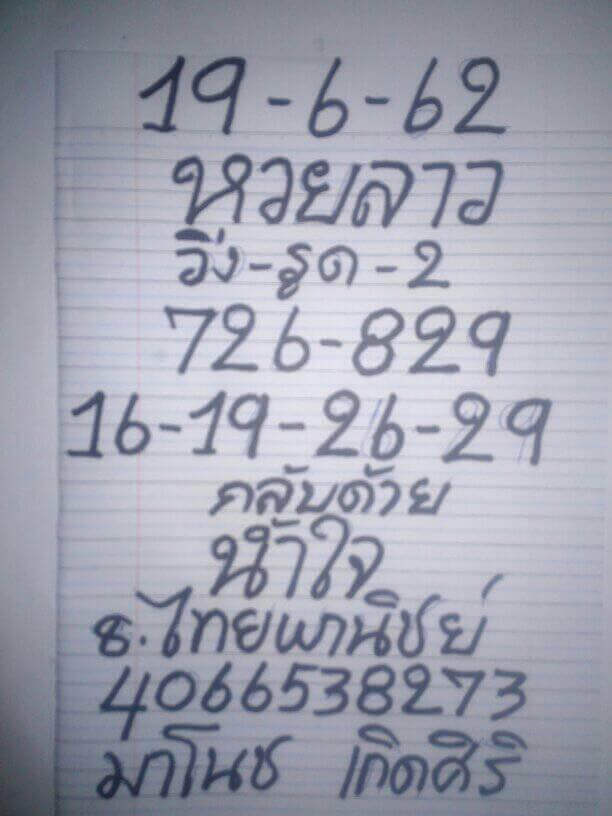 19-6-62
หวยลาว
วิ่ง-รูด-2
726-829
16-19-26-29
กลับด้วย
น้ำใจ
ธ.ไทยพานิชย์
4066538273
มาโนช เกิดศิริ